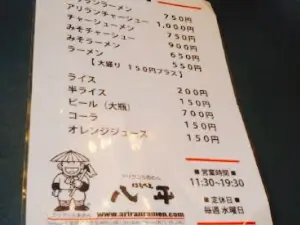 アリランラーメン 750円
アリランチャーシュー 1,000円
チャーシューメン 750円
みそチャーシュー 900円
みそラーメン 650円
ラーメン 550円
【大盛り 150円プラス】
ライス 200円
半ライス 150円
ビール（大瓶）
コーラ 150円
オレンジジュース 150円
八平
www.ariranramen.com
■営業時間■
11:30~19:30
■定休日■
毎週 水曜日